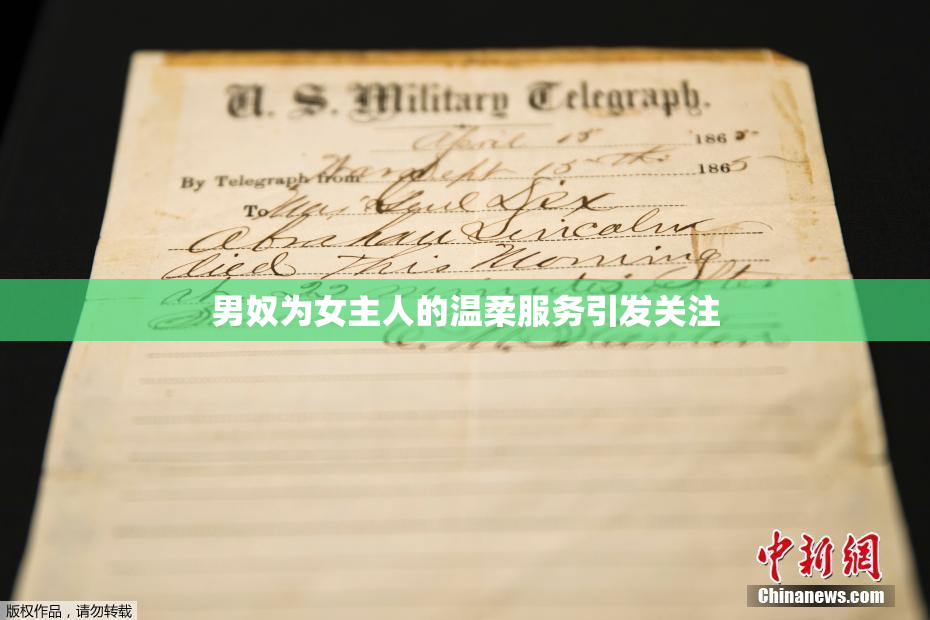 U. S. Military Telegraph.
April 15 1865
By Telegraph from War Dept 15th 1865
To Maj Genl Dix
Abraham Lincoln
died This Morning
at 22 minutes after
男奴为女主人的温柔服务引发关注
E. M. Stanton
中新網
Chinanews.com
版权作品，请勿转载